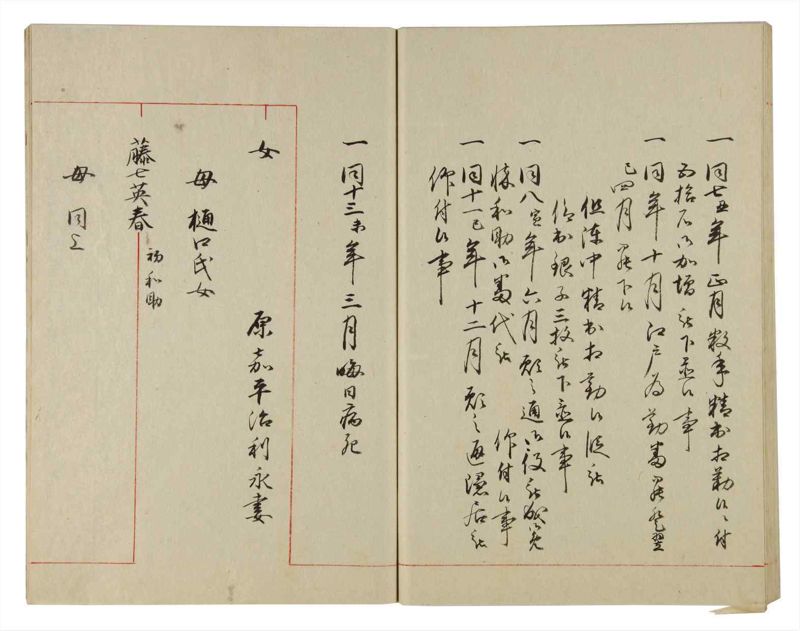 一同七丑年正月数年精出相勤候ニ付
五拾石御加増被下置候事
一同年十月江戸為勤番罷登翌
巳四月罷下候
但陳中精出相勤候段被
銀子三枚被下置候事
一同八寅年六月願之通御役被成御免
悴和助御番代被 仰付候事
一同十一巳年十二月願之通隠居被
仰付候事
一同十三未年三月晦日病死
女
母樋口氏女
原嘉平治利永妻
藤七英春
初和助
母同上